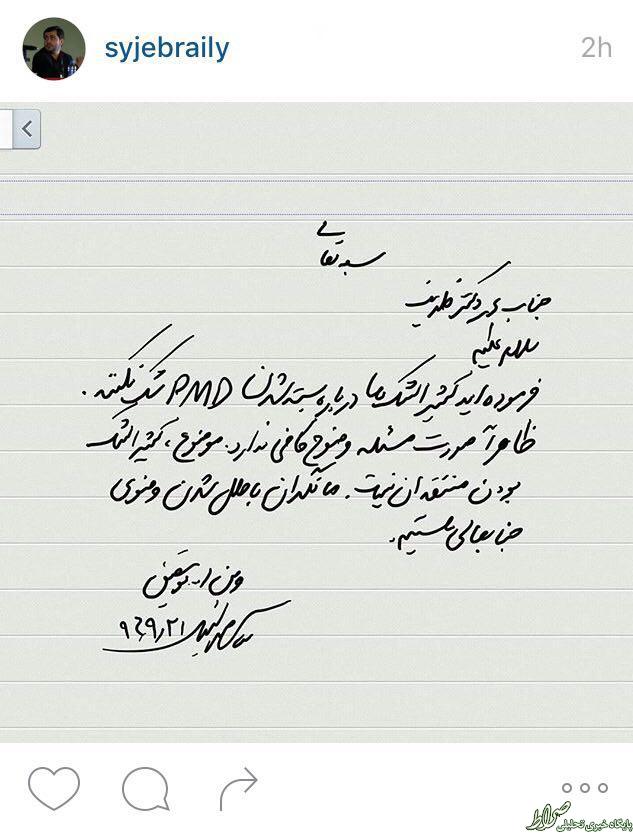 syjebraily
2h
بسمه تعالی
جناب دکتر ظریف
سلام علیکم
فرموده اید کثیر الشک ها درباره بسته شدن PMD شک نکنند.
ظاهراً صورت مسئله وضوح کافی ندارد. موضوع، کثیر الشک
بودن منتقدان نیست. ما نگران باطل شدن وضوی
جنابعالی هستیم.
و من ا... توفیق
صراط
پایگاه خبری تحلیلی